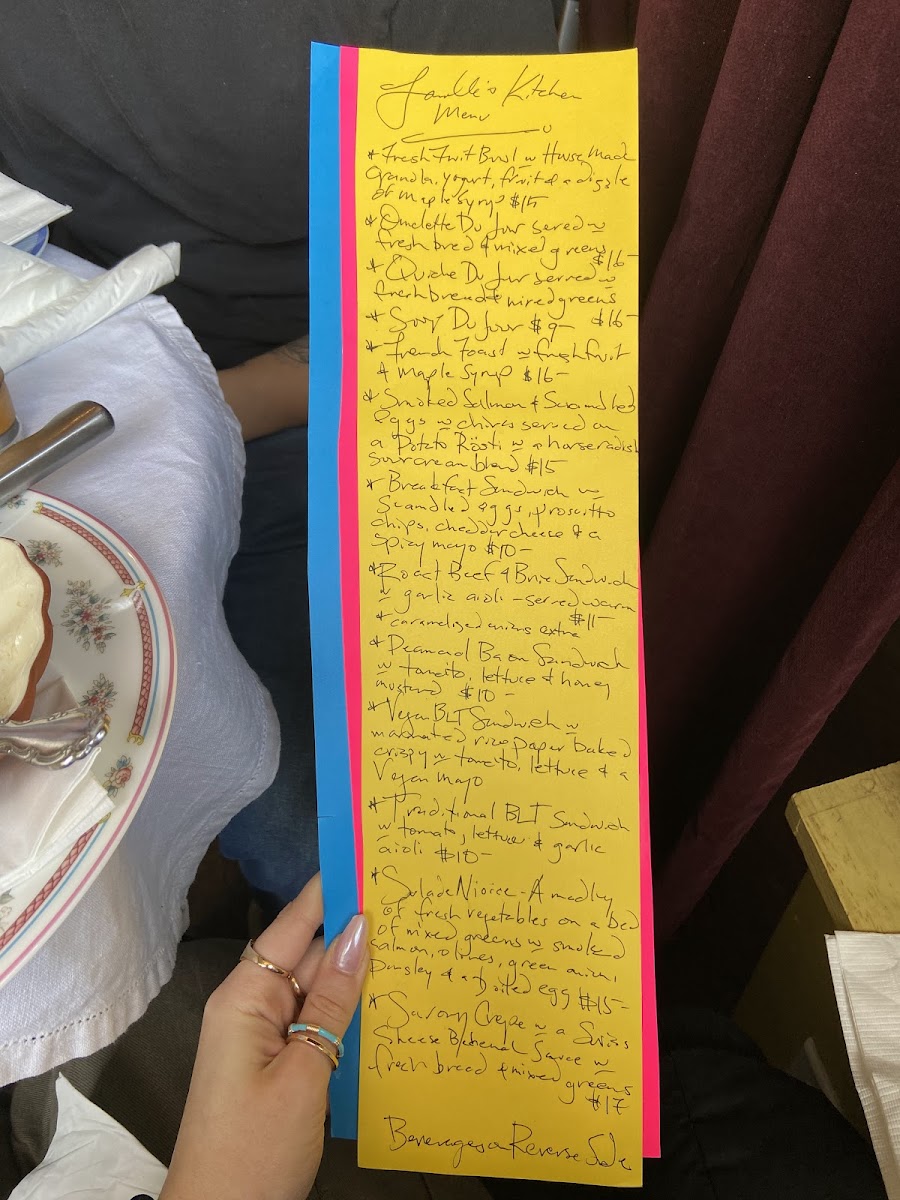 Kitchen
Menu
* Fresh Fruit Bowl w House Made
Granola, yogurt, fruit & a drizzle
of Maple Syrup $15
* Omelette Du Jur served w
fresh bred & mixed greens
$16-
* Quiche Du Jur served w
fresh bread & mixed greens
$16-
* Soup Du Jour $9-
* French Toast w fresh fruit
& Maple Syrup $16-
* Smoked Salmon & Scrambled
eggs w chives served on
a Potato Rösti w a horseradish
sour cream blend $15
* Breakfast Sandwich w
Scrambled eggs, proscuitto
chips, cheddar cheese & a
Spicy mayo $10-
* Roast Beef & Brie Sandwich
w garlic aioli - served warm
$11-
* caramelized onions extra
* Peameal Bacon Sandwich
w tomato, lettuce & honey
mustard $10-
* Vegan BLT Sandwich w
marinated rice paper baked
crispy w tomato, lettuce & a
Vegan mayo
* Traditional BLT Sandwich
w tomato, lettuce & garlic
aioli $10-
* Salade Nicoice - A medley
of fresh vegetables on a bed
of mixed greens w smoked
salmon, olives, green onion,
Parsley & a boiled egg $15-
* Savory Crepe w a Swiss
Cheese Bechemel Sauce w
fresh breed & mixed greens
$17
Beverages on Reverse Side